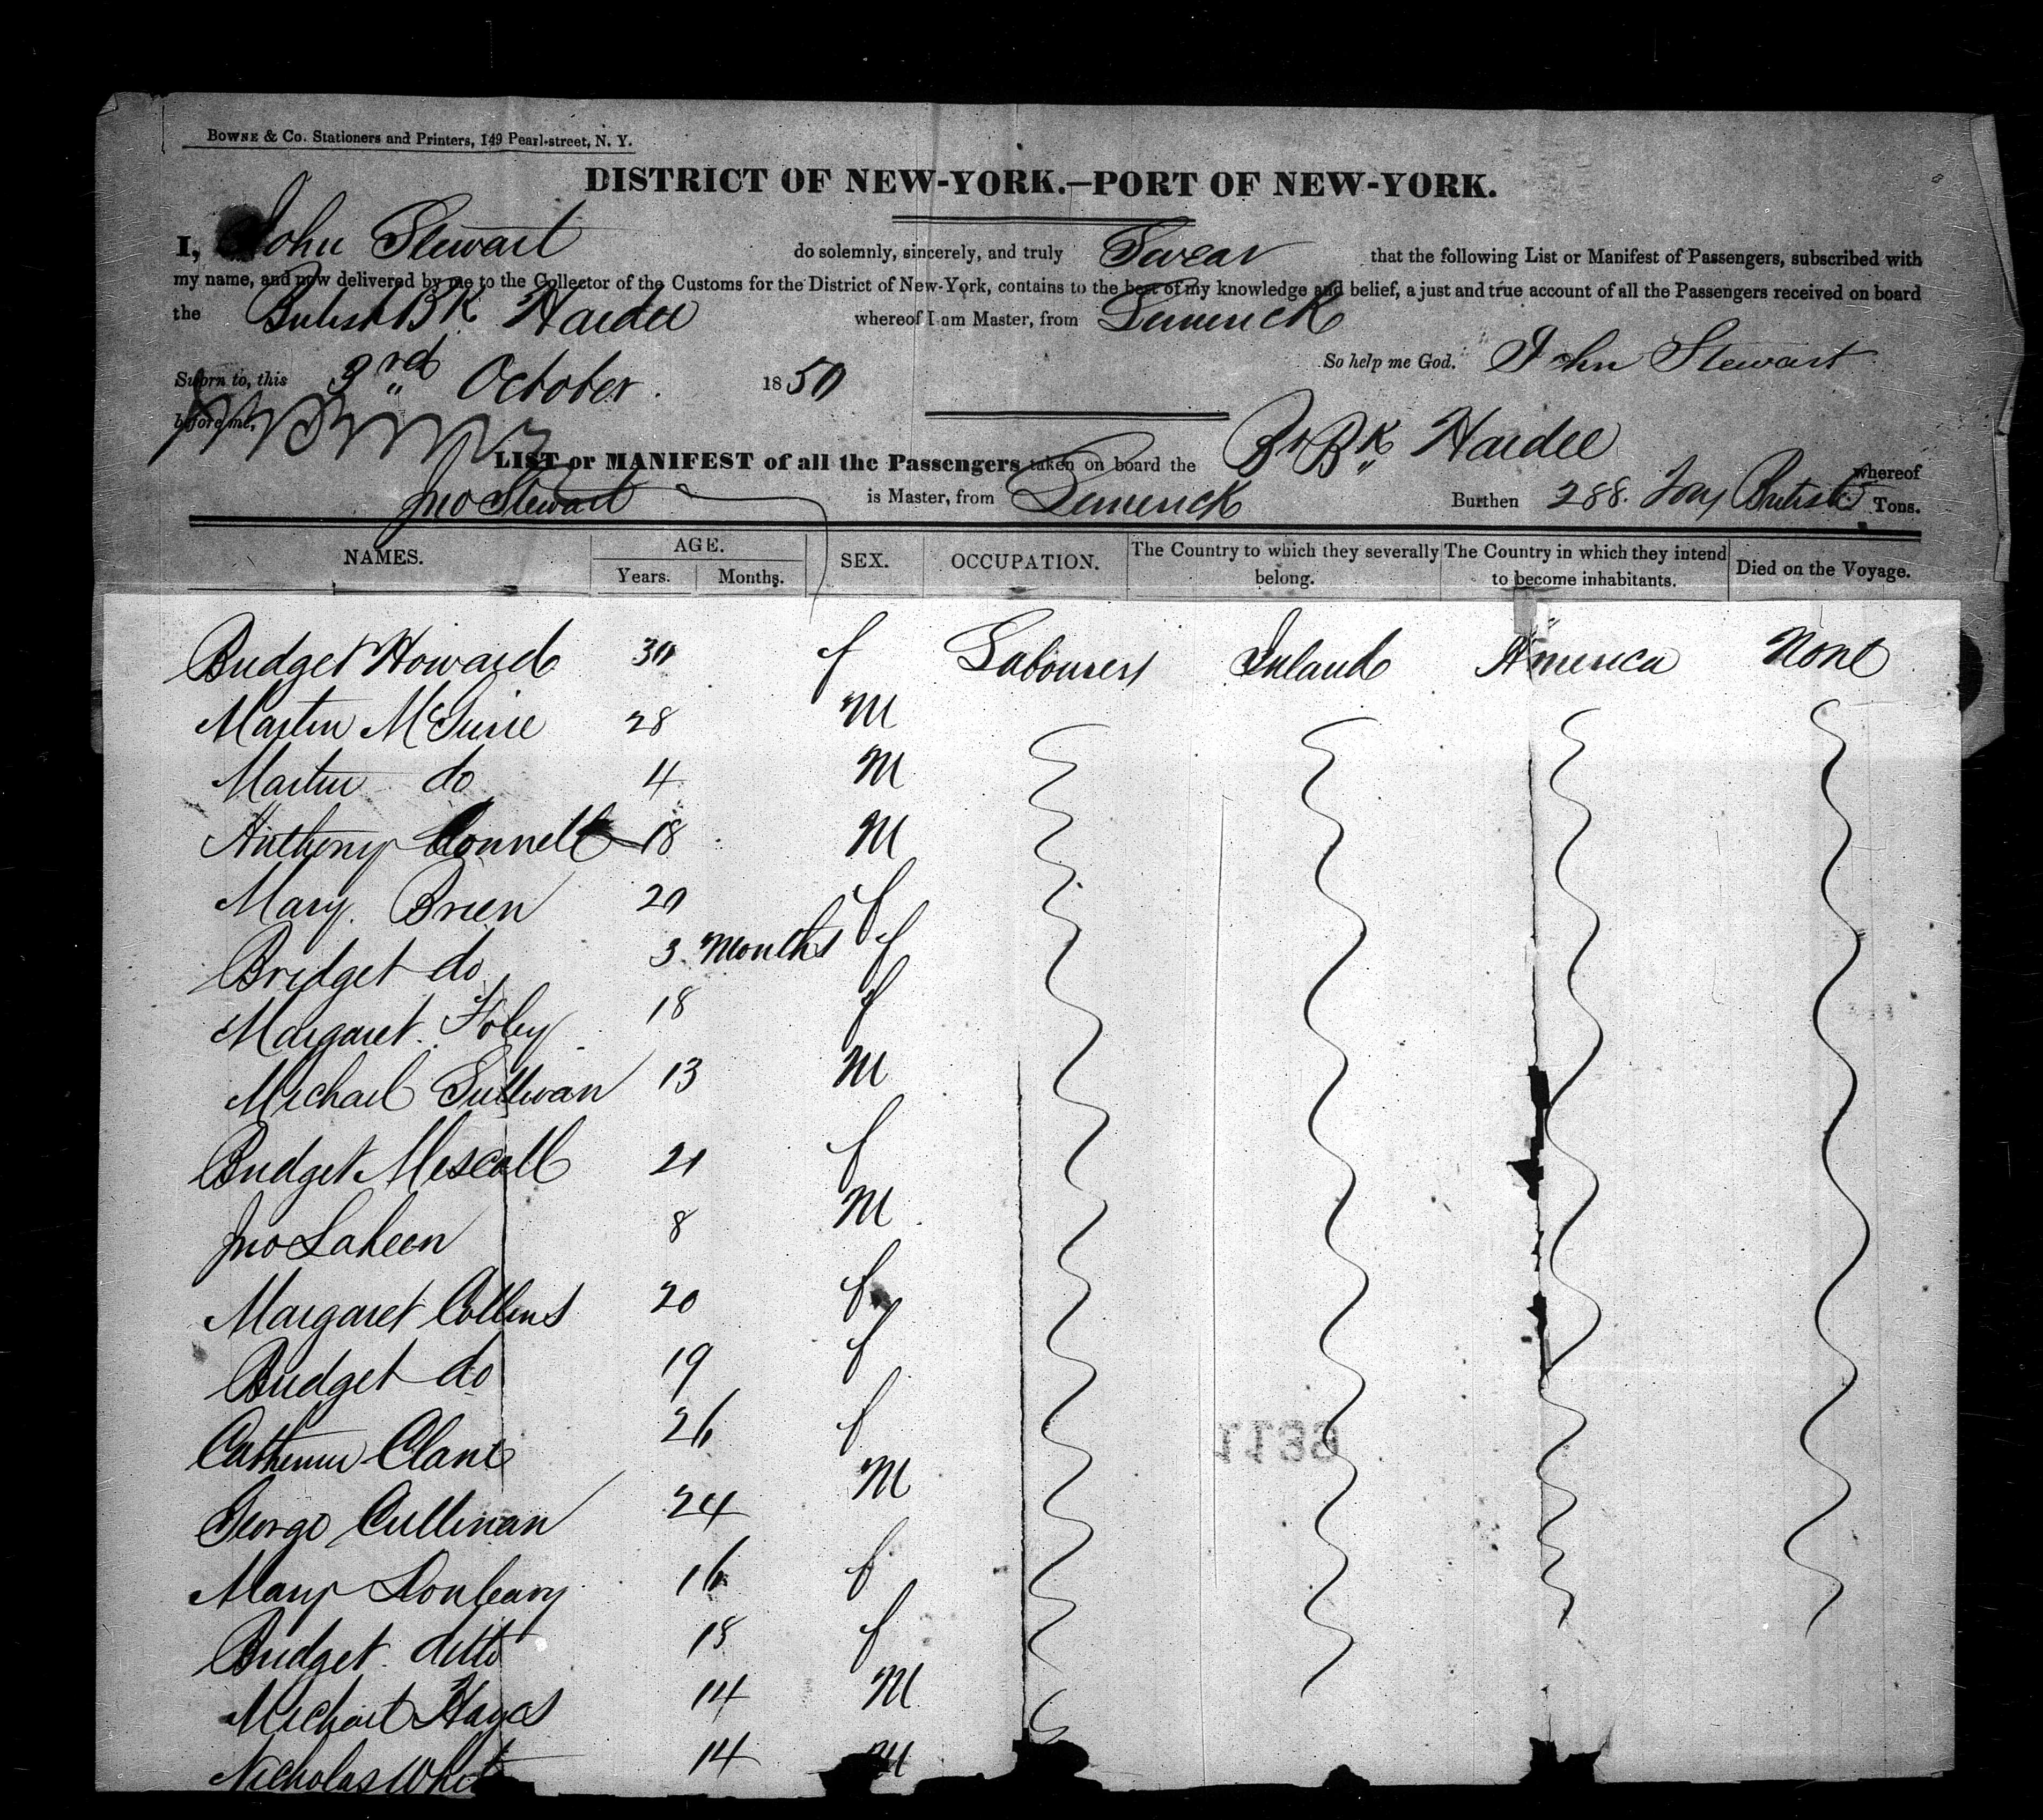 BOWNE & Co. Stationers and Printers, 149 Pearl-street, N. Y.
DISTRICT OF NEW-YORK.—PORT OF NEW-YORK.
I, John Stewart do solemnly, sincerely, and truly Swear that the following List or Manifest of Passengers, subscribed with
my name, and now delivered by me to the Collector of the Customs for the District of New-York, contains to the best of my knowledge and belief, a just and true account of all the Passengers received on board
the British BK Hardee whereof I am Master, from Limerick
So help me God. John Stewart
Sworn to, this 3rd October 1850
before me,
LIST or MANIFEST of all the Passengers taken on board the Br BK Hardee whereof
Jno Stewart is Master, from Limerick Burthen 288. Tons British Tons.
NAMES. AGE. SEX. OCCUPATION. The Country to which they severally belong. The Country in which they intend to become inhabitants. Died on the Voyage.
Years. Months.
Bridget Howard 30 f Labourers Ireland America None
Martin McGuire 28 M
Martin do 4 M
Anthony Connell 18 M
Mary Brien 20 f
Bridget do 3 Months f
Margaret Foley 18 f
Michael Sullivan 13 M
Bridget Mescall 21 f
Jno Laheen 8 M
Margaret Collins 20 f
Bridget do 19 f
Catherine Clane 26 f
George Cullinan 24 M
Mary Donleavy 16 f
Bridget ditto 18 f
Michael Hayes 14 M
Nicholas Whit 14 M